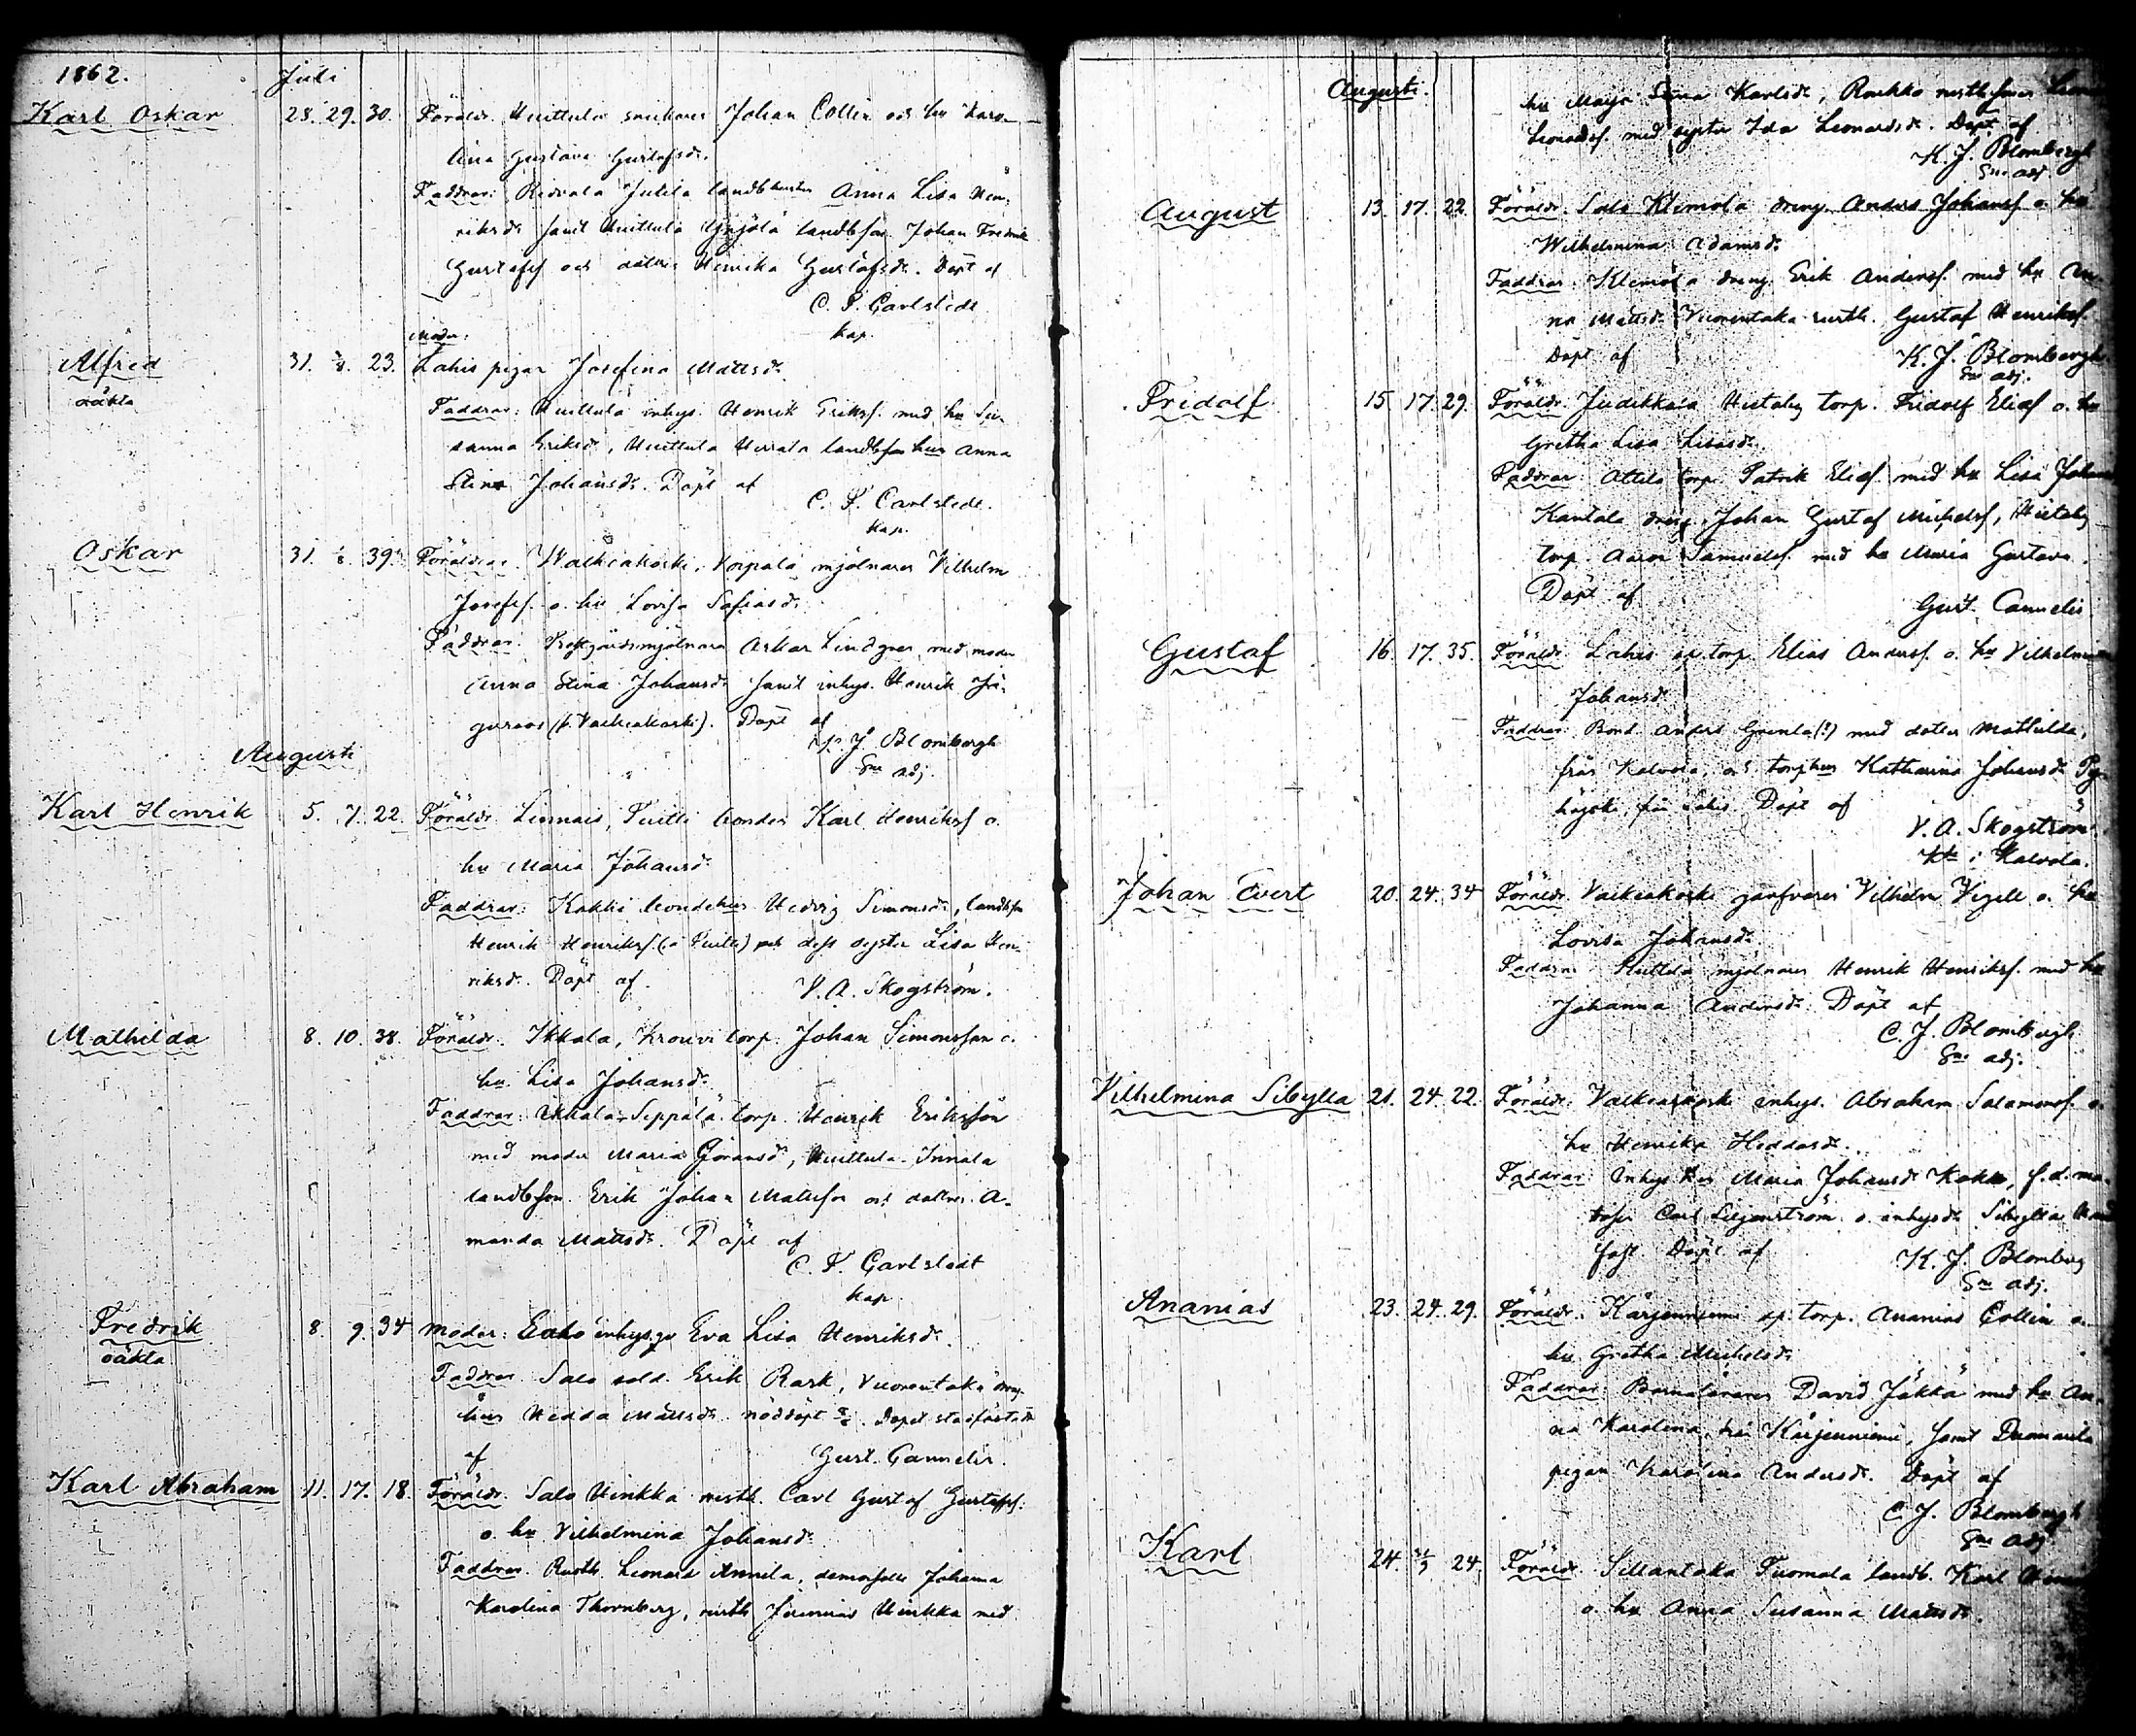 1862. Juli
Karl Oskar 28. 29. 30. Föräldr. Huittula snickaren Johan Collin och hu Karo-
lina Gustava Gustafsdr.
Faddrar: Ridvala Jutila landb Anna Lisa Hen-
riksdr samt Huittula landbson Johan Fredrik
Gustafsf och Henrika Gustafsdr. Döpt af
C. F. Carlstedt
kap.
Moder:
Alfred 31. 23. Lahis pigan Josefina Mattsdr.
oäkta
Faddrar: Huittula inhys. Henrik Eriksf. med hu Su-
sanna Eriksdr, Huittula landbfons hus Anna
Stina Johansdr. Döpt af
C. F. Carlstedt.
kap.
Oskar 31. 39. Föräldrar. Walkiakoski, mjölnaren Vilhelm
Josefsf. o. hu Lovisa Safiasdr.
Faddrar. mjölnaren Oskar Lindgren med moder
Anna Stina Johansdr samt inhys. Henrik
(f. Valkiakoski). Döpt af
K. J. Blombergh
Sne adj.
Augusti
Karl Henrik 5. 7. 22. Föräldr. Linnais, Tuitti bonden Karl Henriksf o.
hu Maria Johansd.
Faddrar: Kokki bondehus Hedvig Simonsdr, landbfon
Henrik Henriksf. (å Tuitti) och dess syster Lisa Hen-
riksd. Döpt af.
V. A. Skogström.
Mathilda 8. 10. 38. Föräldr. Ikkala, Krouvi torp. Johan Simonsson o.
hu. Lisa Johansdr.
Faddrar: Ikkala-Seppälä torp. Henrik Eriksson
med moder Maria Göransd, Huittula-Innala
landbfon. Erik Johan Mattsson och dottren A-
manda Mattsdr. Döpt af
C. F. Carlstedt
kap.
Fredrik 8. 9. 34 Moder: inhys. Eva Lisa Henriksd.
oäkta.
Faddrar. Salo sold. Erik Rask, Vuorentaka dreng
hus Hedda Mattsdr. nöddöpt. Dopet stadfästadt
af Gust. Cannelin.
Karl Abraham 11. 17. 18. Föräldr. Salo Hinkka rusth. Carl Gustaf Gustafsf.
o. hu Vilhelmina Johansd.
Faddrar. Rusth. Leonard Annila, demoiselle Johanna
Karolina Thornberg, rusth. Jeremias Hinkka med
Augusti.
hu Maja Stina Karlsdr, Raukko rusth.
Leonardsf. med syster Ida Leonardsdr. Döpt af
K. J. Blombergh
Sne adj.
August 13. 17. 22. Föräldr. Salo Klemola dreng Anders Johansf o. hu
Wilhelmina Adamsdr.
Faddrar. Klemola dreng. Erik Andersf. med hu An-
na Mattsdr. Vuorentaka rusth. Gustaf Henriksf.
Döpt af K. J. Blombergh
Sne adj.
Fridolf 15. 17. 29. Föräldr. Judikkala Hietalag torp. Fridolf Eliaf o. hu
Gretha Lisa
Faddrar Attila torp. Patrik Eliaf med hu Lisa
Kantala dreng Johan Gustaf Michelsf, Hietalag
torp. Aaron Samuelsf. med hu Maria Gustava.
Döpt af
Gust. Cannelin
Gustaf 16. 17. 35. Föräldr. Lahis torp. Elias Andersf. o. hu Vilhelmina
Johansd.
Faddrar. Bond. Anders (?) med dotter Mathilda,
från Kalvola, och torphus Katharina Johansdr
från Lahis. Döpt af
V. A. Skogström
i Kalvola.
Johan Evert 20. 24. 34 Föräldr. Valkiakoski garfvaren Vilhelm Vigell o. hu
Lovisa Johansdr.
Faddrar. mjölnaren Henrik Henriksf. med hu
Johanna Andersdr. Döpt af
C. J. Blombergh
Sne adj.
Vilhelmina Sibylla 21. 24. 22. Föräldr. Valkiakoski inhys. Abraham Salomonsf. o.
hu Henrika
Faddrar. Inhys hus Maria Johansdr Kokko, f.d. ma-
troser Carl Liljenström o. inhysdr Sibylla
Döpt af K. J. Blomberg
Sne adj.
Ananias 23. 24. 29. Föräldr. Kärjenniemi sp. torp. Ananias Collin o.
hu. Gretha Michelsdr
Faddrar. Barnaläraren David Jäkkä med hu An-
na Karolina, från Kärjenniemi, samt
pigan Karolina Andersdr. Döpt af
C. J. Blombergh
Sne adj
Karl 24. 24. Föräldr. Sillantaka Tuomala landb. Karl
o. hu Anna Susanna Mattsdr.